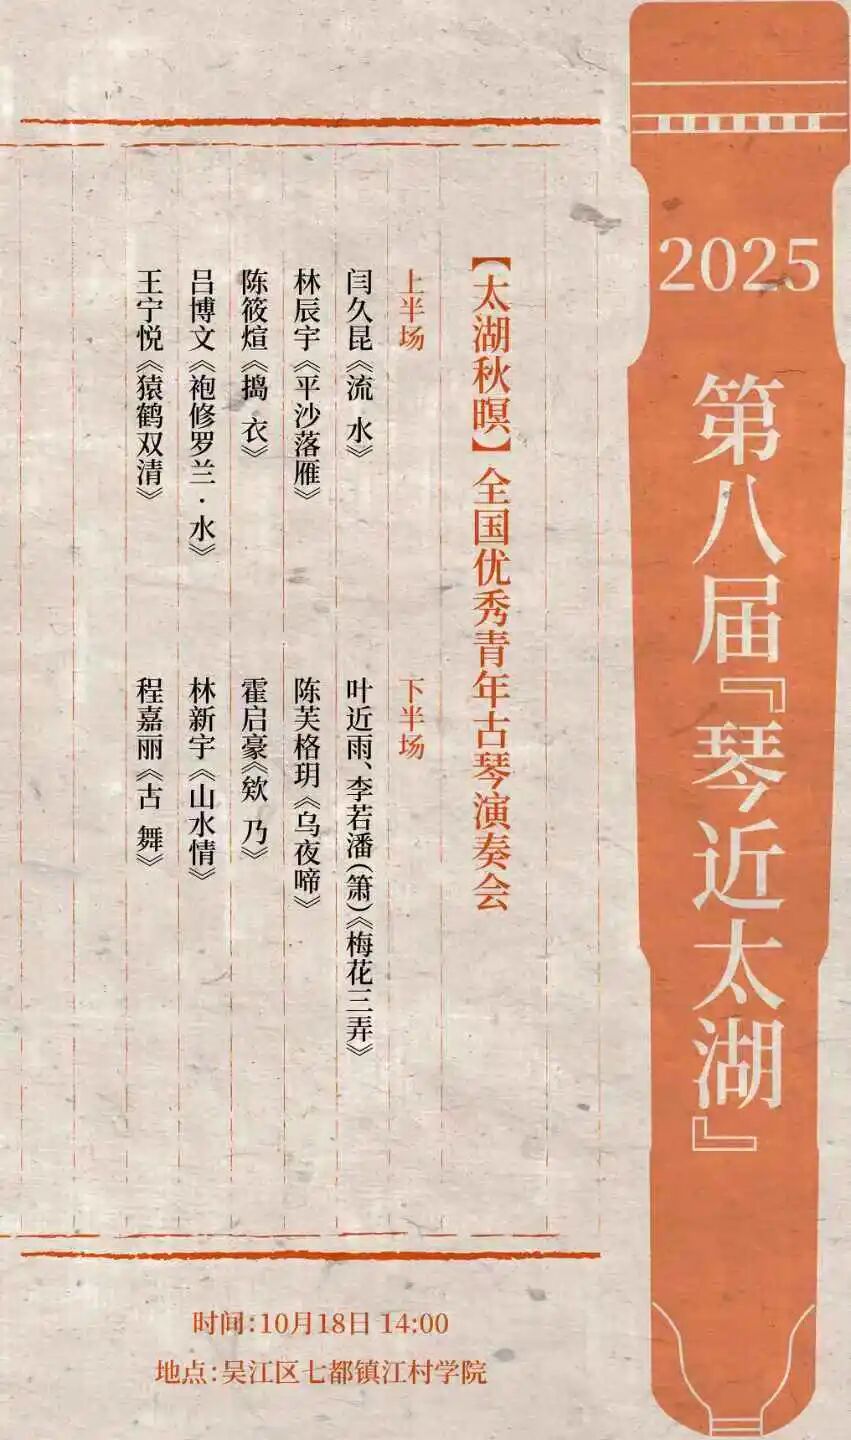 2025
第八届『琴近太湖』
【太湖秋暝】全国优秀青年古琴演奏会
上半场
闫久昆《流 水》
林辰宇《平沙落雁》
陈筱煊《捣 衣》
吕博文《袍修罗兰·水》
王宁悦《猿鹤双清》
下半场
叶近雨、李若潘(箫)《梅花三弄》
陈芙格玥《乌夜啼》
霍启豪《欸 乃》
林新宇《山水情》
程嘉丽《古 舞》
时间:10月18日 14:00
地点:吴江区七都镇江村学院